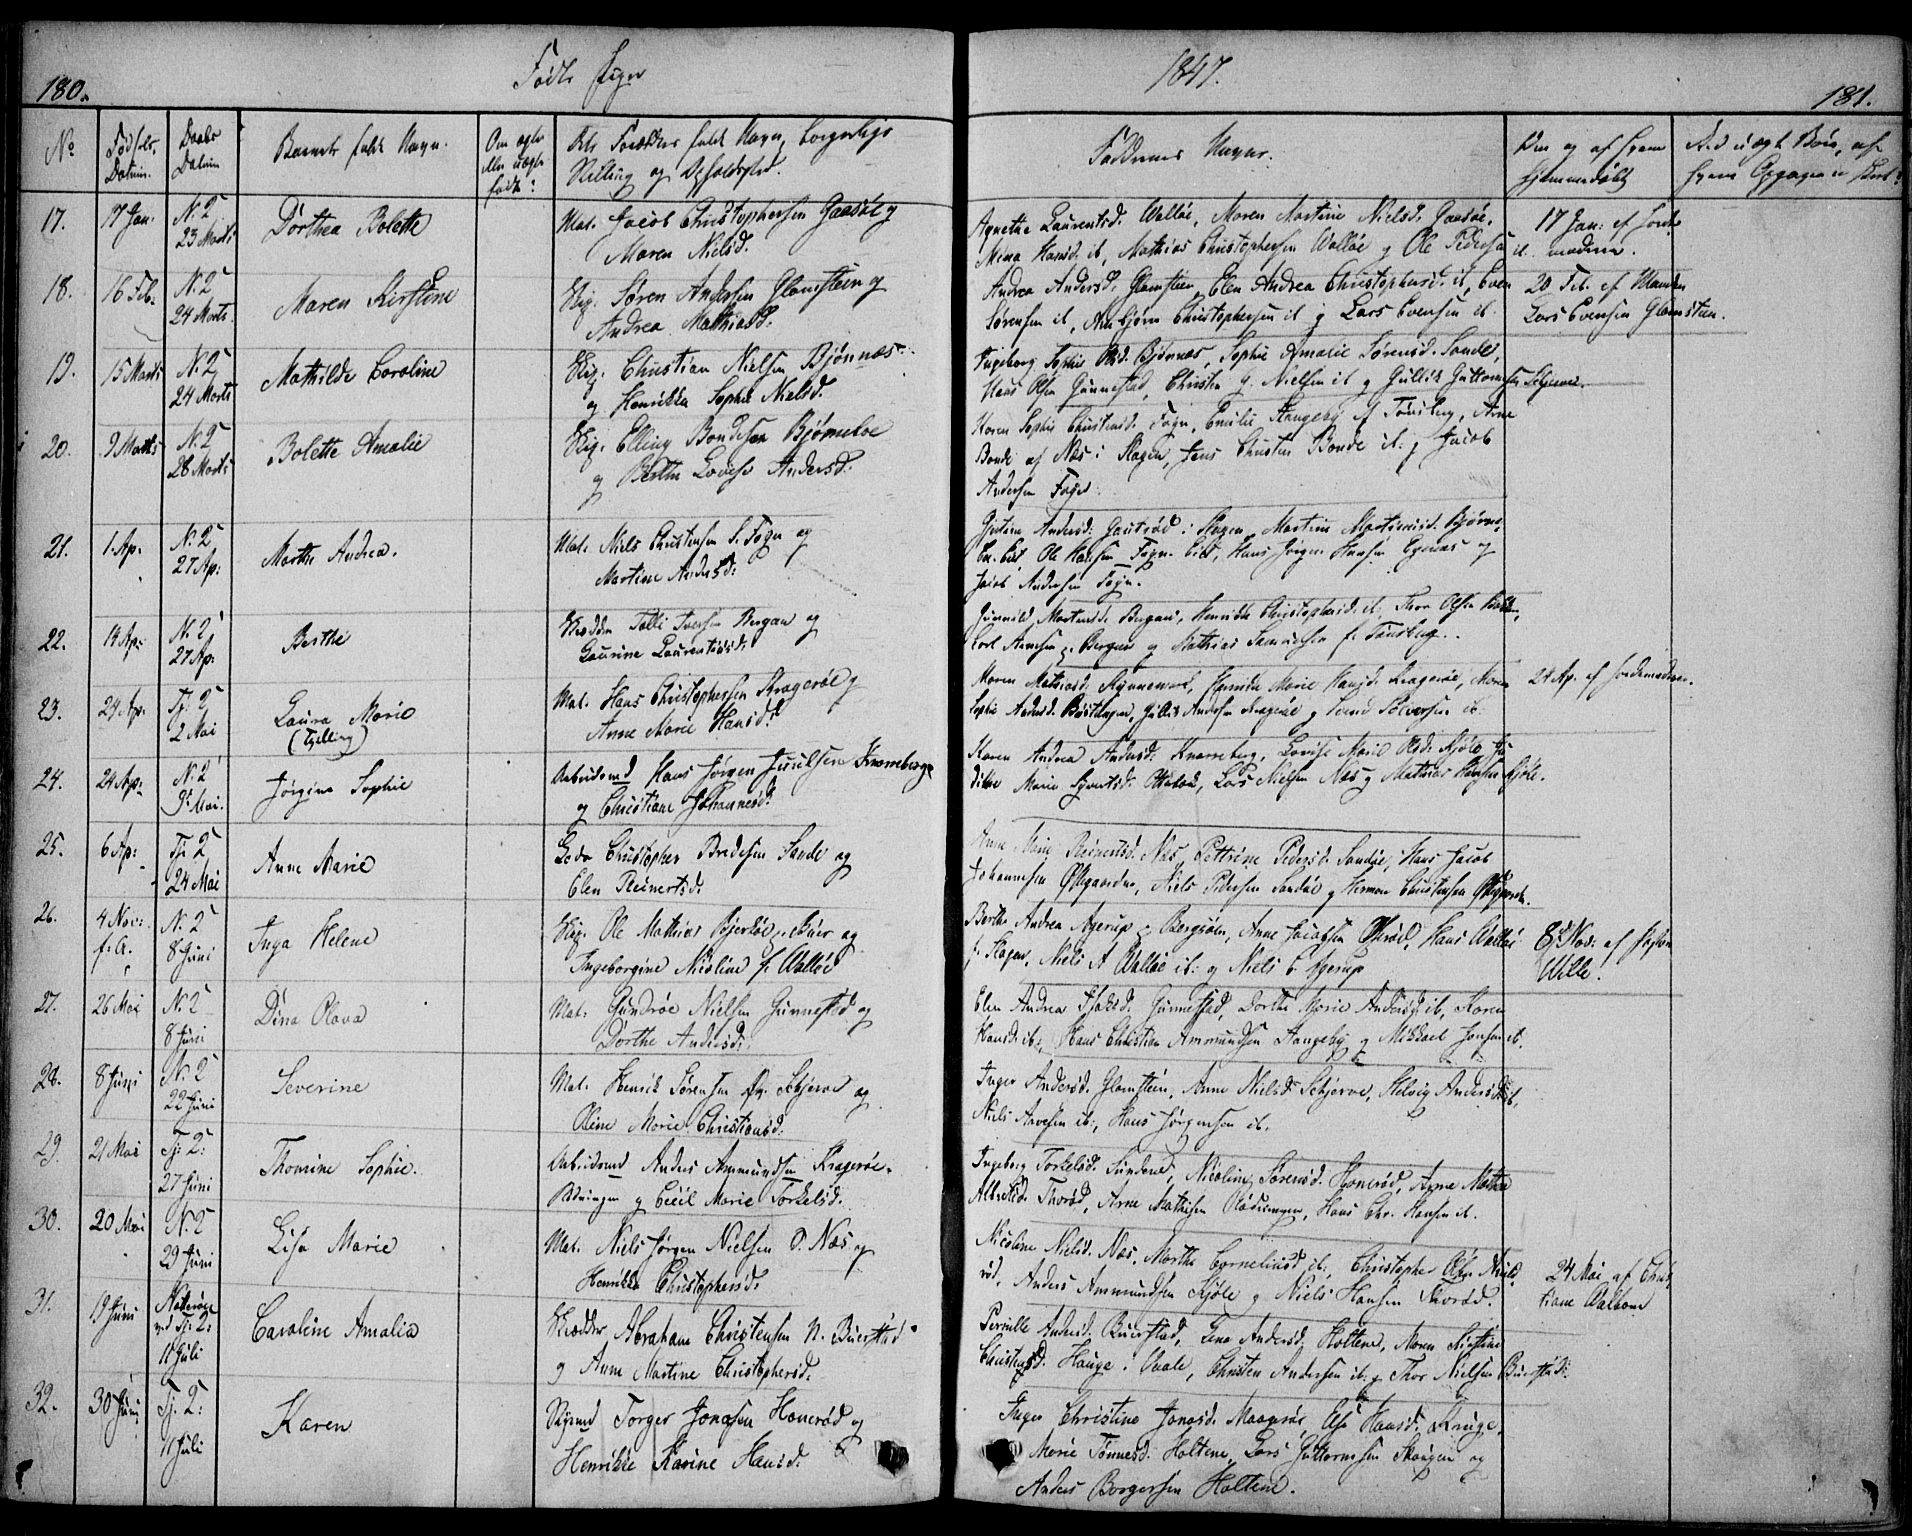 180.
Født Piger
1847.
181.
No
Fødsels Datum.
Daabs Datum
Barnets fulde Navn.
Om ægte eller uægte født?
Forældres fulde Navn, borgerlige
Stilling og Opholdsted.
Faddernes Navne.
af hvem
hjemmedøbt
17.
17 Jan.
N. 2
23 Marts
Dørthea Bolette
Mat. Jacob Christophersen Gaasøe og
Maren Nielsd.
Agnethe Laurentsd. Walløe, Maren Martine Nielsd. Gaasøe,
Mina Hansd. ib, Mathias Christophersen Walløe og Ole Pedersen ib.
17 Jan: af Jorde
moderen.
18.
16 Feb.
N. 2
24 Marts.
Maren Kirstine
Eig. Søren Andersen Glomstein og
Andrea Mathiasd.
Andrea Andersd. Glomstein, Elen Andrea Christophersd. ib, Even
Sørensen ib, Christophersen ib og Lars Evensen ib.
20 Feb. af Manden
Lars Evensen Glomstein.
19.
15 Marts
N. 2
24 Marts
Mathilde Caroline
Eig. Christian Nielsen Bjønnæs
og Henrikka Sophie Nielsd.
Ingeborg Sophie Olsd. Bjønnæs, Sophie Amalie Sørensd. Sande,
Hans Olsen Gunnestad, Christen G. Nielsen ib og Gullik Guttormsen
20.
9 Marts
N. 2
28 Marts
Bolette Amalie
Eig. Elling Bondesen Bjørneboe
og Berthe Lovise Andersd.
Karen Sophie Christensd. Fogn, Emilie Stangeby af Tønsberg, Arne
Bonde af Næs i Slagen, Jens Christen Bonde ib. og Jacob
Andersen Fogn.
21.
1. Ap.
N. 2
27 Ap:
Marthe Andrea.
Mat. Niels Christensen S. Fogn og
Martine Andersd:
Andersd. i Slagen, Martine
Ole Hansen Fogn Hans Jørgen Hansen og
Jacob Andersen Fogn.
22.
14 Ap:
N. 2
27 Ap:
Berthe
Iversen Bergan og
Laurine Laurentiusd.
Gunnild Bergan, Henrikke Christophersd. ib. Thor Olsen
Bergan og Mathias f. Tønsberg.
23.
24 Ap.
Tj. 2
2 Mai
Laura Marie
(Tvilling)
Mat. Hans Christophersen Kragerøe og
Anne Marie Hansd.
Maren Mathiasd. Marie Hansd. Kragerøe, Maren
Sophie Andersd. Andersen Kragerøe og ib.
24 Ap. af Jordemoderen.
24.
24 Ap:
N. 2
9 Mai.
Jørgine Sophie
Arbeidsmd Hans Jørgen Juulsen Knarreberg
og Christiane Johannesd.
Karen Andrea Andersd. Knarreberg, Lovise Marie Olsd. Kjøle,
Marie Lars Nielsen Næs og Mathias Hansen Kjøle.
25.
6 Ap:
Tj. 2
24 Mai
Anne Marie
Christopher Bredesen Sande og
Elen Reinertsd.
Anne Reinertsd. Næs, Pettrine Pedersd. Sandøe, Hans Jacob
Johannesen Niels Pedersen Sandøe og Herman Christensen
26.
4 Nov:
f. A.
N. 2
8 Juni
Inga Helene
Eig. Ole Mathias Bjerkøe og
Ingeborgine Nicoline f. Walløe
Berthe Andrea Agerup Anne Jacobsen Hans Walløe
f. Slagen, Niels A Walløe ib: og Niels C. Agerup
8d Nov. af
Wille.
27.
26 Mai
N. 2
8 Juni
Dina Olava
Mat. Gundroe Nielsen Gunnestad og
Dorthe Andersd.
Elen Andrea Isaksd. Gunnestad, Dorthe Marie Andersd. ib, Karen
Hansd. ib:, Hans Christian Ammundsen Stangeby og Mikkael Jensen ib.
28.
8 Juni
N. 2
22 Juni
Severine
Mat. Henrik Sørensen Skjerve og
Oline Marie Christiansd.
Inger Andersd. Glomstein, Anne Nielsd. Skjerve, Helvig Andersd. ib.
Niels Arvesen ib:, Hans Jørgensen ib.
29.
21 Mai
Tj: 2:
27 Juni
Thomine Sophie.
Arbeidsmd Anders Ammundsen Kragerøe.
og Cecil Marie Torkelsd.
Ingeborg Torkelsd. Sundene, Nicoline Sørensd. Honerød, Anne Mathea
Albretsd. Thorød, Arne Mathisen Hans Chr. Hansen ib.
30.
20 Mai
N. 2
29 Juni
Lisa Marie
Mat. Niels Jørgen Nielsen Ø. Næs og
Henrikke Christophersd.
Nicoline Nielsd. Næs, Marthe Corneliusd. ib:, Christopher
rød, Anders Ammundsen Kjøle og Niels Hansen Thorød.
24 Mai af Chris
tiane Walbom
31.
19 Juni
Nøterøe
ved Tj: 2:
11 Juli
Caroline Amalia
Skrædder Abraham Christensen N. Buerstad
og Anne Martine Christophersd.
Pernille Andersd. Buerstad, Lena Andersd. Holtene, Maren Kirstine
Christensd. Hauge i Vaale, Christen Andersen ib. og Thor Nielsen Buerstad.
32.
30 Juni
Tj: 2:
11 Juli
Karen
Torger Jonasen Honerød og
Henrikke Karine Hansd.
Inger Christine Jonasd. Maagerøe, Else Hansd. Kruge,
Marie Tønnesd. Holtene, Lars Guttormsen Skougen og
Anders Borgersen Holtene.